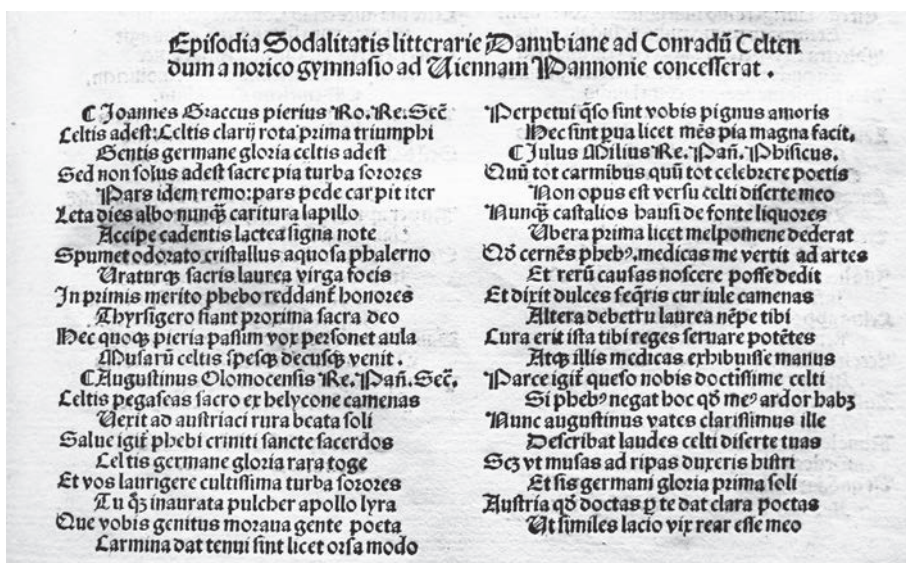 Episodia Sodalitatis litterarie Danubiane ad Conradū Celten
dum a norico gymnasio ad Uiennam Pannonie concesserat .
¶ Joannes Graccus pierius Ro. Re. Sec̄
Celtis adest: Celtis clarij rota prima triumphi
Gentis germane gloria celtis adest
Sed non solus adest sacre pia turba sorores
Pars idem remo: pars pede carpit iter
Leta dies albo nunqꝫ caritura lapillo
Accipe cadentis lactea signa note
Spumet odorato cristallus aquosa phalerno
Uraturqꝫ sacris laurea virga focis
In primis merito phebo reddant᷑ honores
Thyrsigero fiant proxima sacra deo
Hec quoqꝫ pieria passim vox personet aula
Musarū celtis spesqꝫ decusqꝫ venit .
¶ Augustinus Olomocensis Re. Pañ. Sec̄.
Celtis pegaseas sacro ex helycone camenas
Uexit ad austriaci rura beata soli
Salue igit᷑ phebi criniti sancte sacerdos
Celtis germane gloria rara toge
Et vos laurigere cultissima turba sorores
Tu qꝫ inaurata pulcher apollo lyra
Que vobis genitus moraua gente poeta
Carmina dat tenui sint licet orsa modo
Perpetui q̄so sint vobis pignus amoris
Hec sint pua licet mēs pia magna facit.
¶ Julus Milius Re. Pañ. Phisicus.
Quū tot carmibus quū tot celebrere poetis
Non opus est versu celti diserte meo
Nunqꝫ castalios hausi de fonte liquores
Ubera prima licet melpomene dederat
Qd̄ cernēs phebꝰ. medicas me vertit ad artes
Et rerū causas noscere posse dedit
Et dixit dulces seq̄ris cur iule camenas
Altera debetru laurea nēpe tibi
Cura erit ista tibi reges seruare potētes
Atqꝫ illis medicas exhibuisse manus
Parce igit᷑ queso nobis doctissime celti
Si phebꝰ negat hoc qd̄ meꝰ ardor habꝫ
Nunc augustinus vates clarissimus ille
Describat laudes celti diserte tuas
Scꝫ vt musas ad ripas duxeris histri
Et sis germani gloria prima soli
Austria qd̄ doctas p̱ te dat clara poetas
Ut similes lacio vix rear esse meo